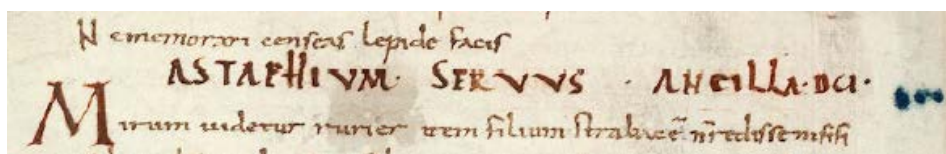 Nememorari censeas lepide facis
ASTAPHIUM· SERVVS · ANCILLA·DCI·
Mirum uidetur rurier item filium strabacē n̄redissenisisi